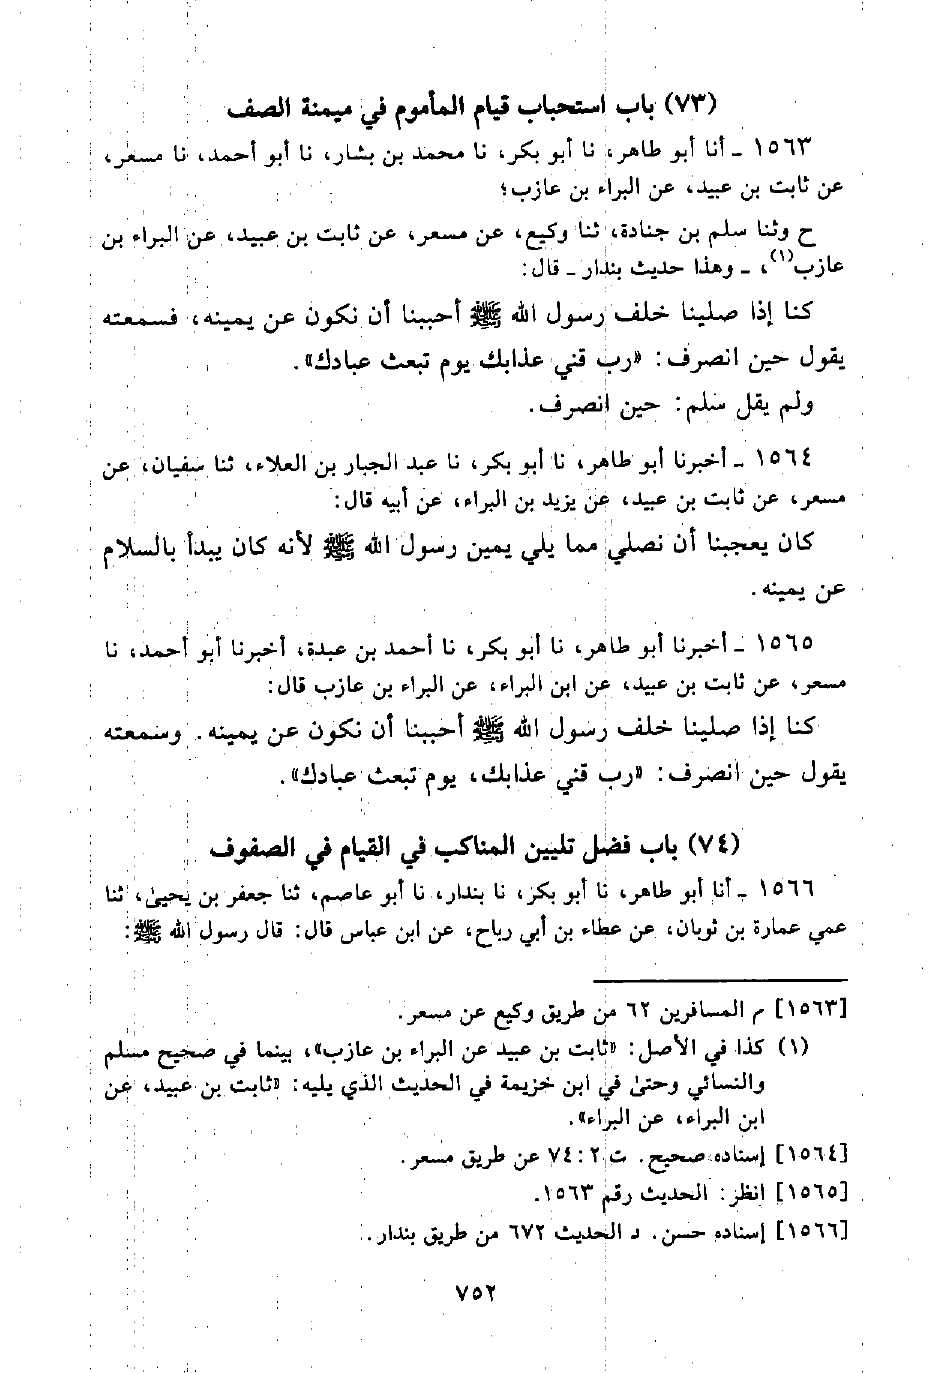 (٧٣) باب استحباب قيام المأموم في ميمنة الصف
١٥٦٣ ـ أنا أبو طاهر، نا أبو بكر، نا محمد بن بشار، نا أبو أحمد، نا مسعر،
عن ثابت بن عبيد، عن البراء بن عازب؛
ح وثنا سلم بن جنادة، ثنا وكيع، عن مسعر، عن ثابت بن عبيد، عن البراء بن
عازب(١)، ـ وهذا حديث بندار ـ قال:
كنا إذا صلينا خلف رسول الله ﷺ أحببنا أن نكون عن يمينه، فسمعته
يقول حين انصرف: «رب قني عذابك يوم تبعث عبادك».
ولم يقل سلم: حين انصرف.
١٥٦٤ ـ أخبرنا أبو طاهر، نا أبو بكر، نا عبد الجبار بن العلاء، ثنا سفيان، عن
مسعر، عن ثابت بن عبيد، عن يزيد بن البراء، عن أبيه قال:
كان يعجبنا أن نصلي مما يلي يمين رسول الله ﷺ لأنه كان يبدأ بالسلام
عن يمينه.
١٥٦٥ ـ أخبرنا أبو طاهر، نا أبو بكر، نا أحمد بن عبدة، أخبرنا أبو أحمد، نا
مسعر، عن ثابت بن عبيد، عن ابن البراء، عن البراء بن عازب قال:
كنا إذا صلينا خلف رسول الله ﷺ أحببنا أن نكون عن يمينه. وسمعته
يقول حين انصرف: «رب قني عذابك، يوم تبعث عبادك».
(٧٤) باب فضل تليين المناكب في القيام في الصفوف
١٥٦٦ ـ أنا أبو طاهر، نا أبو بكر، نا بندار، نا أبو عاصم، ثنا جعفر بن يحيىٰ، ثنا
عمي عمارة بن ثوبان، عن عطاء بن أبي رباح، عن ابن عباس قال: قال رسول الله ﷺ:
[١٥٦٣] م المسافرين ٦٢ من طريق وكيع عن مسعر.
(١) كذا في الأصل: «ثابت بن عبيد عن البراء بن عازب»، بينما في صحيح مسلم
والنسائي وحتىٰ في ابن خزيمة في الحديث الذي يليه: «ثابت بن عبيد، عن
ابن البراء، عن البراء».
[١٥٦٤] إسناده صحيح. ت ٢: ٧٤ عن طريق مسعر.
[١٥٦٥] انظر: الحديث رقم ١٥٦٣.
[١٥٦٦] إسناده حسن. د الحديث ٦٧٢ من طريق بندار.
٧٥٢